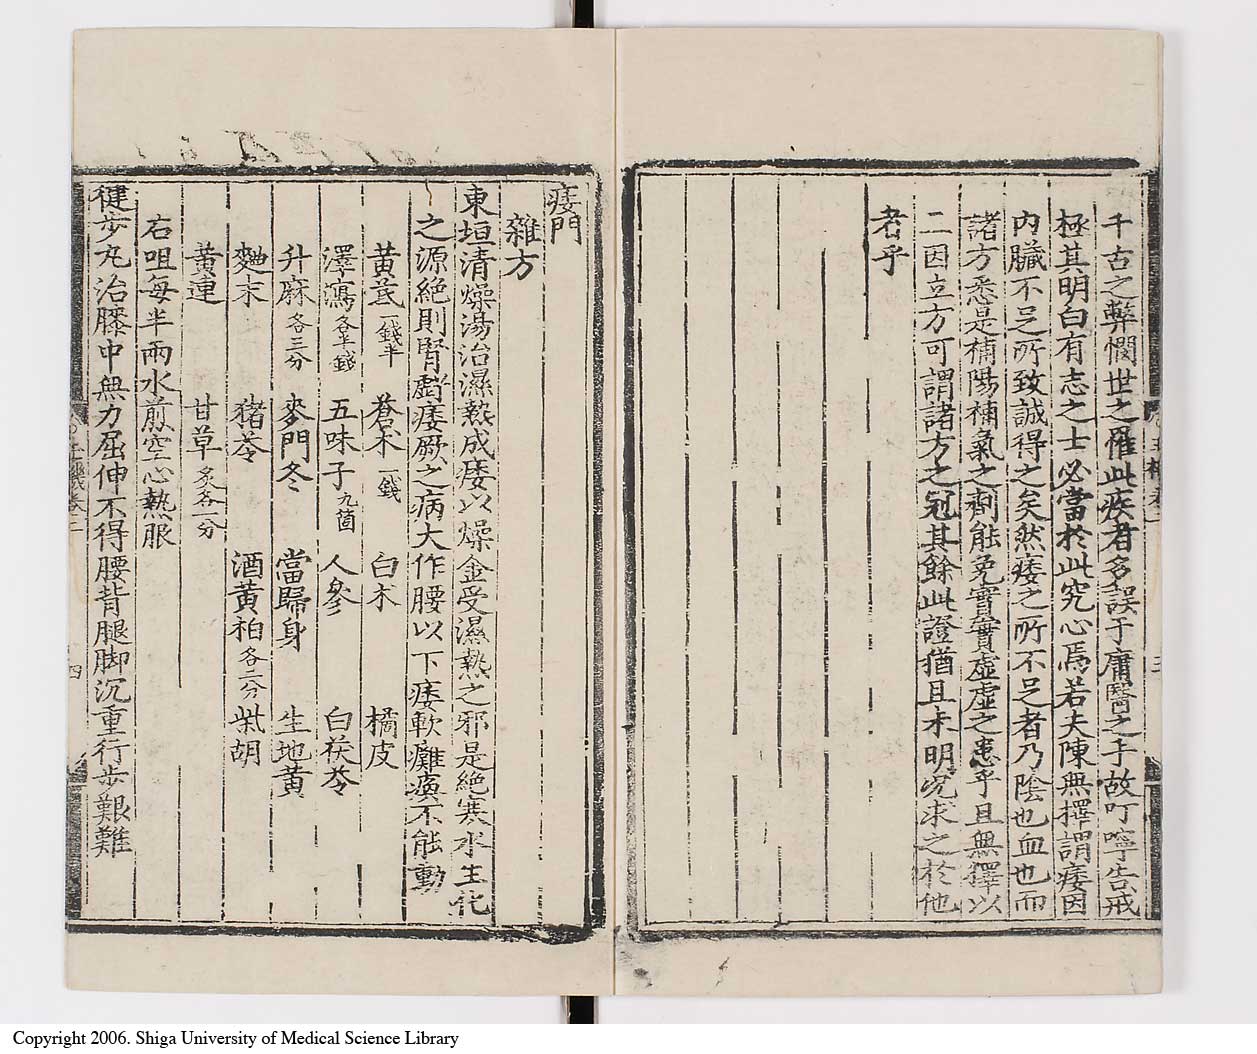 千古之弊憫世之罹此疾者多誤于庸醫之手故叮嚀告戒
極其明白有志之士必當於此究心焉若夫陳無擇謂痿因
内臟不足所致誠得之矣然痿之所不足者乃陰也血也而
諸方悉是補陽補氣之劑能免實實虛虛之患乎且無擇以
三因立方可謂諸方之冠其餘此證猶且未明况求之於他
者乎
三
痿門
雜方
東垣清燥湯治濕熱成痿以燥金受濕熱之邪是絕寒水生化
之源絕則腎虧痿厥之病大作腰以下痿軟癱瘓不能動
黃茋一錢半 蒼朮一錢 白朮 橘皮
澤瀉各半錢 五味子九箇 人參 白茯苓
升麻各三分 麥門冬 當歸身 生地黃
麯末 猪苓 酒黃柏各二分 柴胡
黃連 甘草炙各一分
右咀每半兩水煎空心熱服
健步丸治膝中無力屈伸不得腰背腿脚沉重行步艱難
四
Copyright 2006. Shiga University of Medical Science Library